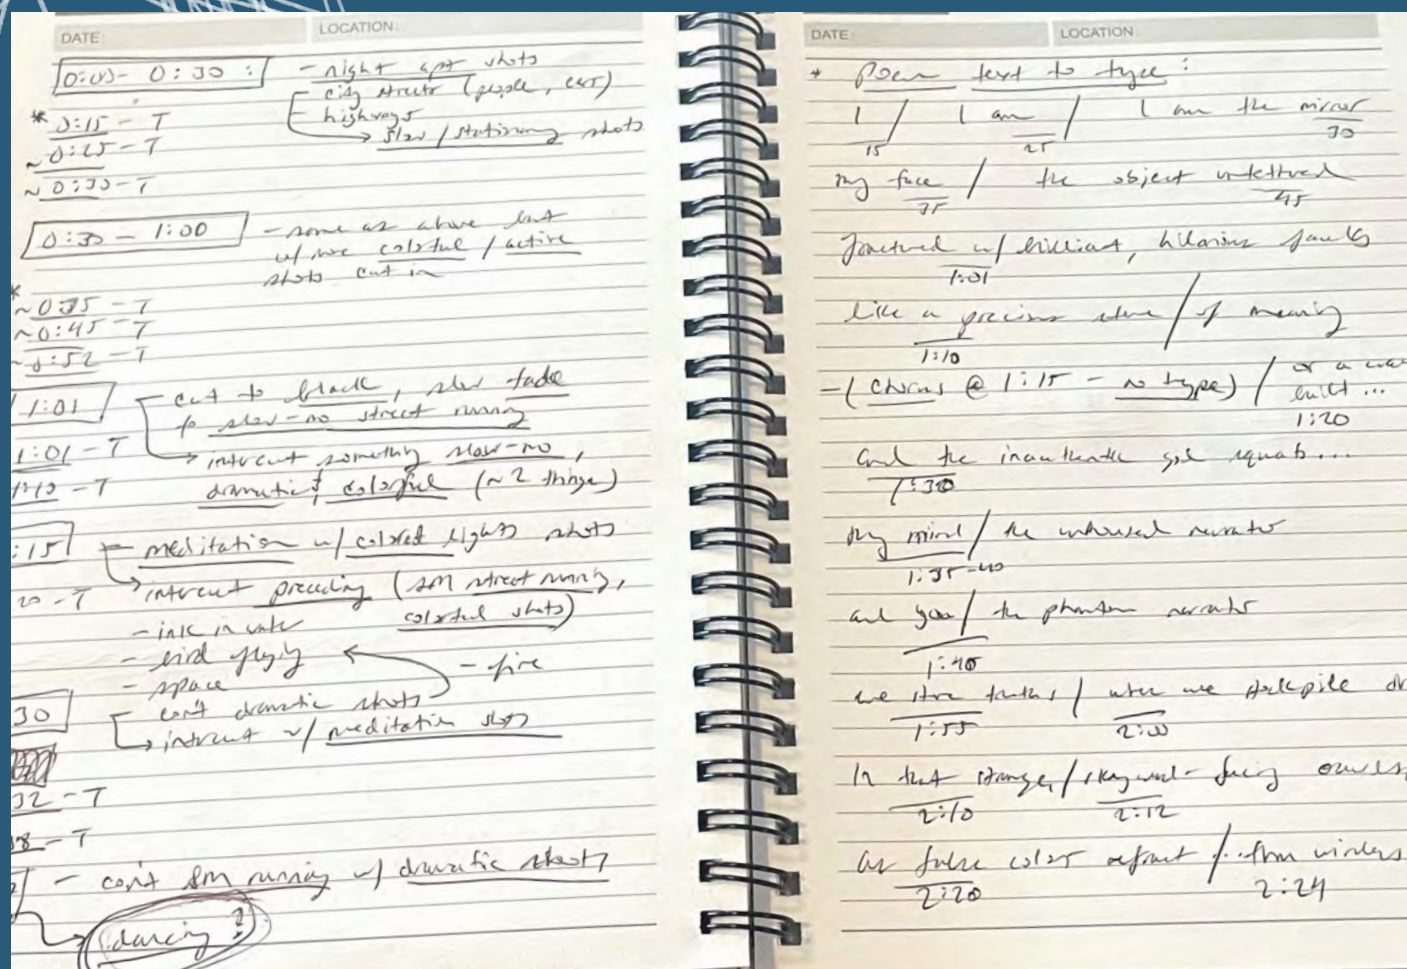 DATE: LOCATION:
0:00 - 0:30 : - night apt shots
city streets (people, cars)
- highways
→ slow / stationary shots
* 0:15 - T
~ 0:25 - T
~ 0:30 - T
0:30 - 1:00 - same as above but
w/ more colorful / active
shots cut in
*
~ 0:35 - T
~ 0:45 - T
~ 0:52 - T
1:01 - cut to black, slow fade
to slow-mo street running
1:01 - T
→ intercut something slow-mo,
1:10 - T
dramatic, colorful (~ 2 things)
:15 - meditation w/ colored lights shots
20 - T
→ intercut preceding (SM street running,
colorful shots)
- ink in water
- bird flying
- fire
- space
30
con't dramatic shots
→ intercut w/ meditation shots
32 - T
38 - T
- con't SM running w/ dramatic shots
dancing ?
DATE: LOCATION
* Poem text to type :
I / I am / I am the mirror
15 25 30
my face / the object unfettered
35 45
fractured w/ brilliant, hilarious faults
1:01
like a precious stone / of meaning
1:10
- ( Chorus @ 1:15 - no type ) / or a
built ...
1:20
and the inauthentic god squats...
1:30
my mind / the unhoused narrator
1:35-40
and you / the phantom narrator
1:40
we store truths / where we stockpile
1:55 2:00
In that strange, / skyward-facing
2:10 2:12
as false colors refract / ...from windows
2:20 2:24